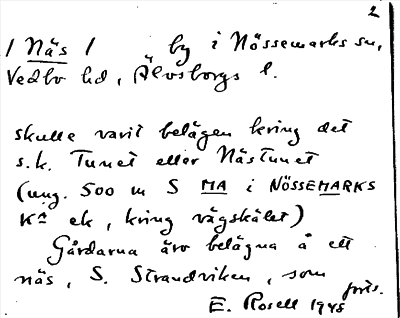 2
/ Näs / by i Nössemarks sn,
Vedbo hd, Älvsborgs l.
skulle varit belägen kring det
s.k. Tunet eller Nästunet
(ung. 500 m S MA i NÖSSEMARKS
Ka ek, kring vägskälet)
Gårdarna äro belägna å ett
näs, S. Strandviken, som
forts.
E. Rosell 1948